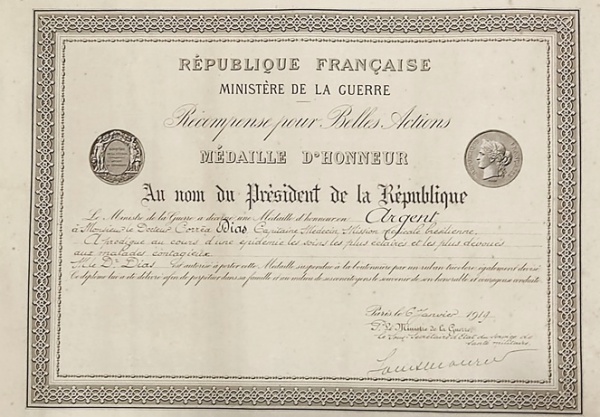 RÉPUBLIQUE FRANÇAISE
MINISTÈRE DE LA GUERRE
Récompense pour Belles Actions
MÉDAILLE D'HONNEUR
Au nom du Président de la République
Le Ministre de la Guerre a décerné une Médaille d'honneur en Argent
à Monsieur le Docteur Corrêa Dias Capitaine Médecin Mission Médicale brésilienne.
A prodigué au cours d'une épidémie les soins les plus éclairés et les plus dévoués
aux malades contagieux
M. le Dr Dias est autorisé à porter cette Médaille suspendue à la boutonnière par un ruban tricolore également divisé
Ce diplôme lui a été délivré afin de perpétuer dans sa famille et au milieu de ses concitoyens le souvenir de son honorable et courageuse conduite
Paris, le 6 Janvier 1919
P. le Ministre de la Guerre
le Sous Secrétaire d'Etat du Service de
Santé militaire.